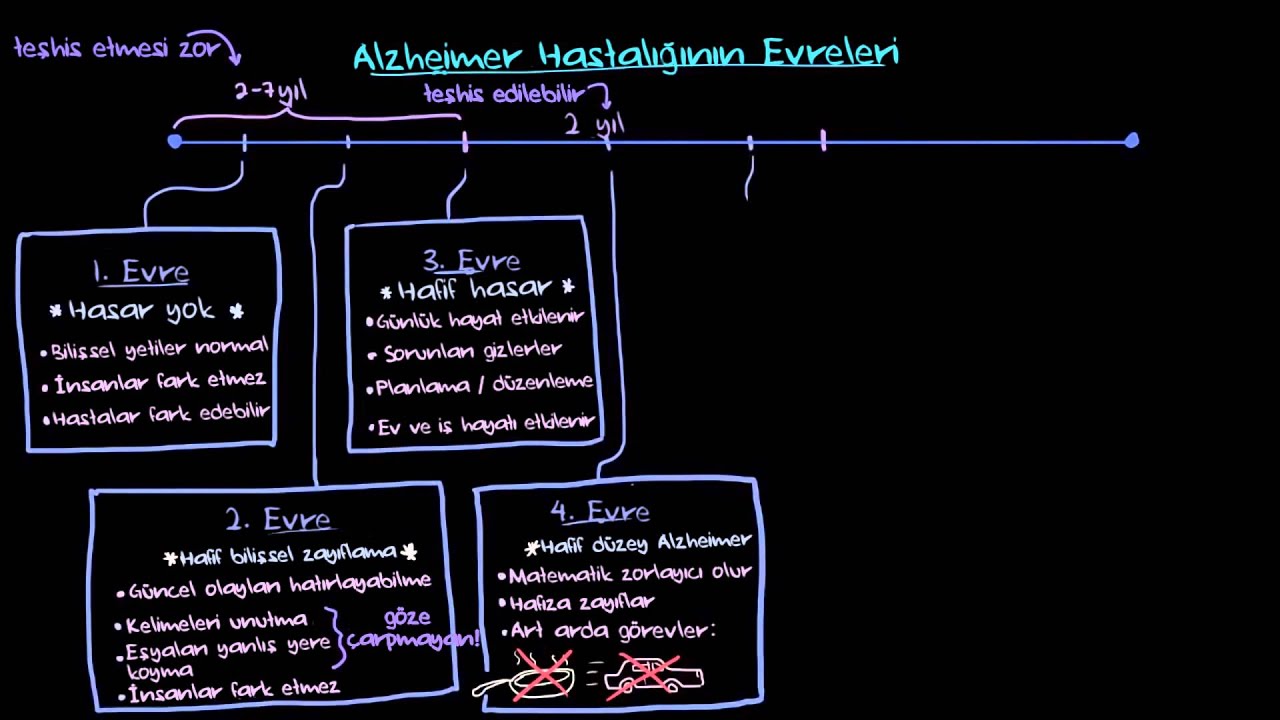 teşhis etmesi zor
Alzheimer Hastalığının Evreleri
2-7 yıl
teşhis edilebilir
2 yıl
1. Evre
* Hasar yok *
• Bilişsel yetiler normal
• İnsanlar fark etmez
• Hastalar fark edebilir
2. Evre
*Hafif bilişsel zayıflama*
• Güncel olayları hatırlayabilme
• Kelimeleri unutma
• Eşyaları yanlış yere
koyma
göze
çarpmayan!
• İnsanlar fark etmez
3. Evre
* Hafif hasar *
• Günlük hayat etkilenir
• Sorunları gizlerler
• Planlama / düzenleme
• Ev ve iş hayatı etkilenir
4. Evre
*Hafif düzey Alzheimer
• Matematik zorlayıcı olur
• Hafıza zayıflar
• Art arda görevler: